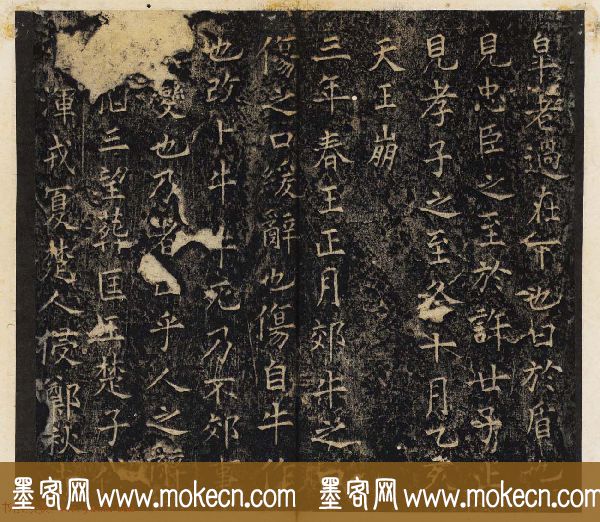 皐者過在下也曰於盾也
見忠臣之至於許世子止
見孝子之至冬十月乙亥
天王崩
三年春王正月郊牛之口
傷之口緩辭也傷自牛作
也改卜牛牛死乃不郊事
變也乃者亡乎人之辭
三望葬匡王楚子伐
渾戎夏楚人侵鄭秋
墨客网 www.mokecn.com 墨客网 www.mokecn.com